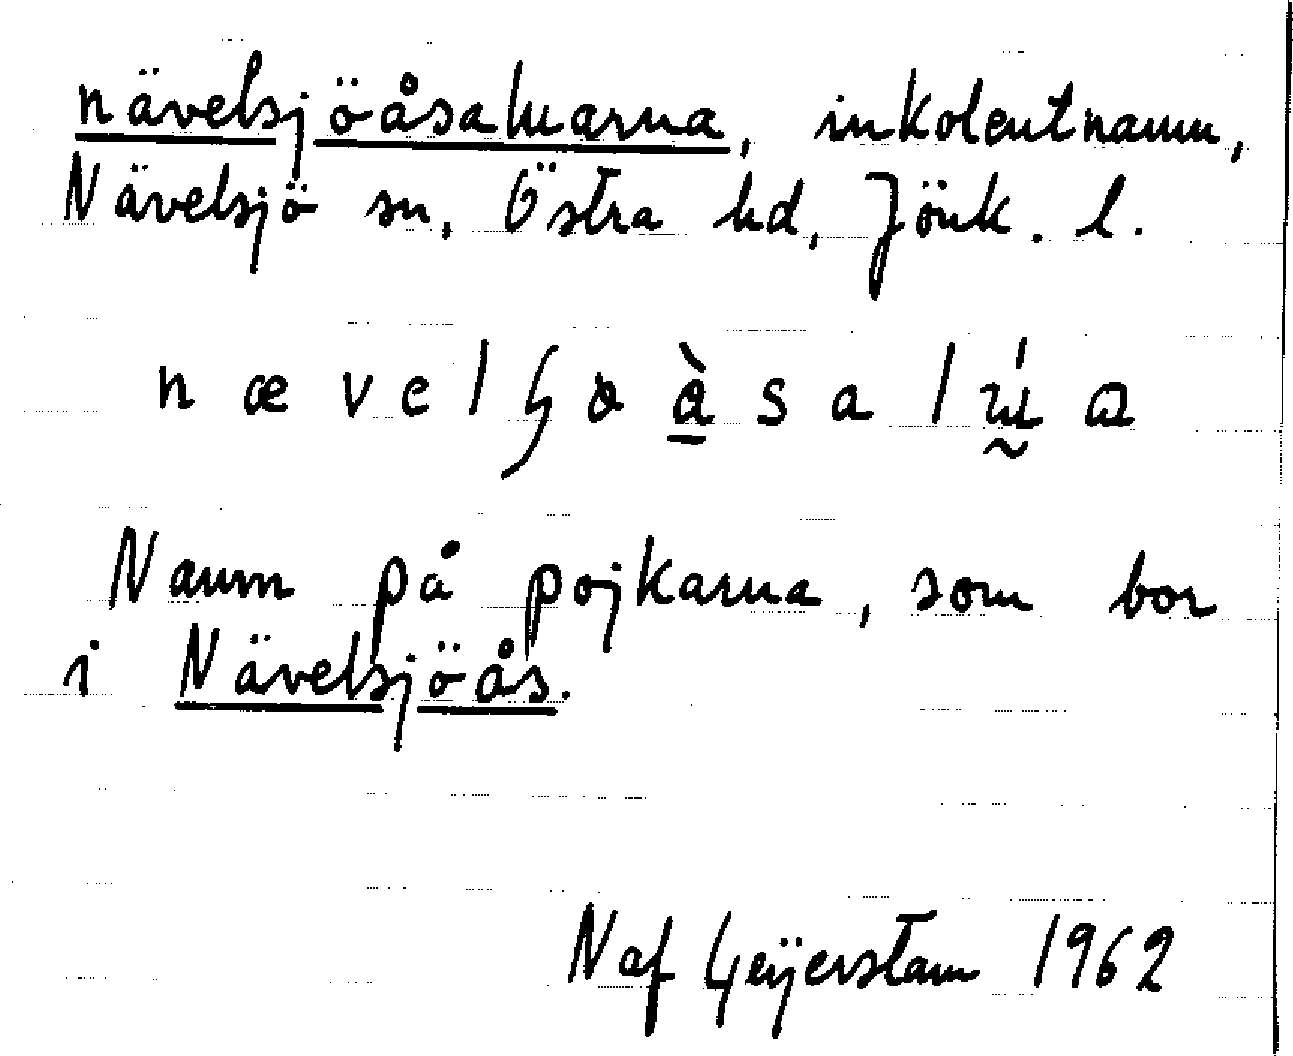 nävelsjöåsaluarna, inkolentnamn,
Nävelsjö sn, Östra hd, Jönk. l.
Namn på pojkarna, som bor
i Nävelsjöås.
N af Geijerstam 1962